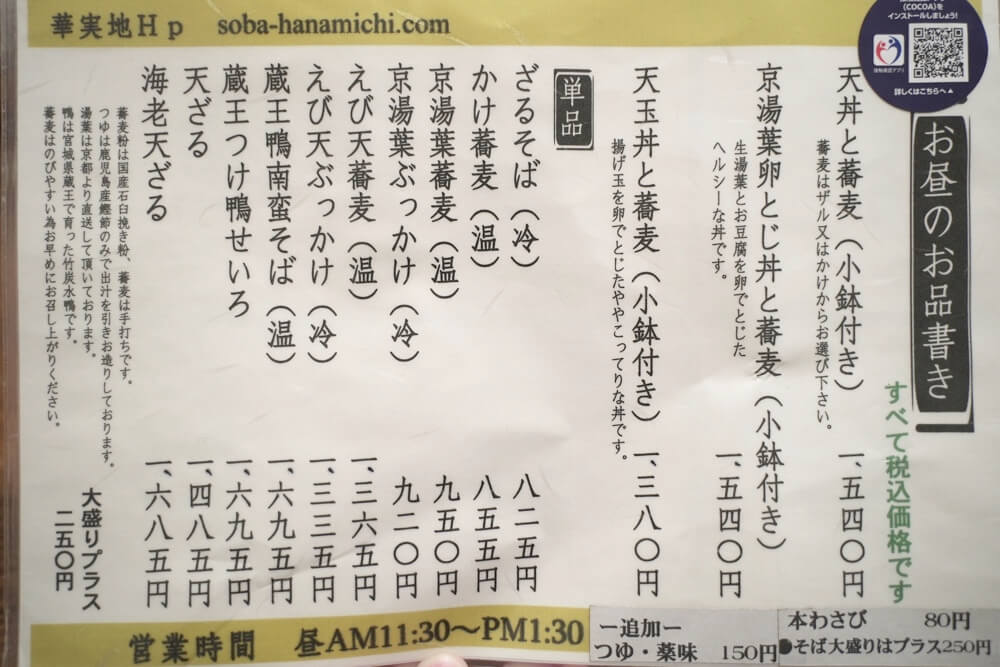 華実地Hp soba-hanamichi.com
(COCOA)を
インストールしましょう!
詳しくはこちらへ▲
お昼のお品書き
すべて税込価格です
天丼と蕎麦(小鉢付き) 一、五四〇円
蕎麦はザル又はかけからお選び下さい。
京湯葉卵とじ丼と蕎麦(小鉢付き)
一、五四〇円
生湯葉とお豆腐を卵でとじた
ヘルシーな丼です。
天玉丼と蕎麦(小鉢付き) 一、三八〇円
揚げ玉を卵でとじたややこってりな丼です。
単品
ざるそば(冷) 八二五円
かけ蕎麦(温) 八五五円
京湯葉蕎麦(温) 九五〇円
京湯葉ぶっかけ(冷) 九二〇円
えび天蕎麦(温) 一、三六五円
えび天ぶっかけ(冷) 一、三三五円
蔵王鴨南蛮そば(温) 一、六九五円
蔵王つけ鴨せいろ 一、六九五円
天ざる 一、四八五円
海老天ざる 一、六八五円
蕎麦粉は国産石臼挽き粉、蕎麦は手打ちです。
つゆは鹿児島産鰹節のみで出汁を引きお造りしております。
湯葉は京都より直送して頂いております。
鴨は宮城県蔵王で育った竹炭水鴨です。
蕎麦はのびやすい為お早めにお召し上がりください。
大盛りプラス
二五〇円
営業時間 昼AM11:30〜PM1:30
ー追加ー
つゆ・薬味 150円
本わさび 80円
●そば大盛りはプラス250円